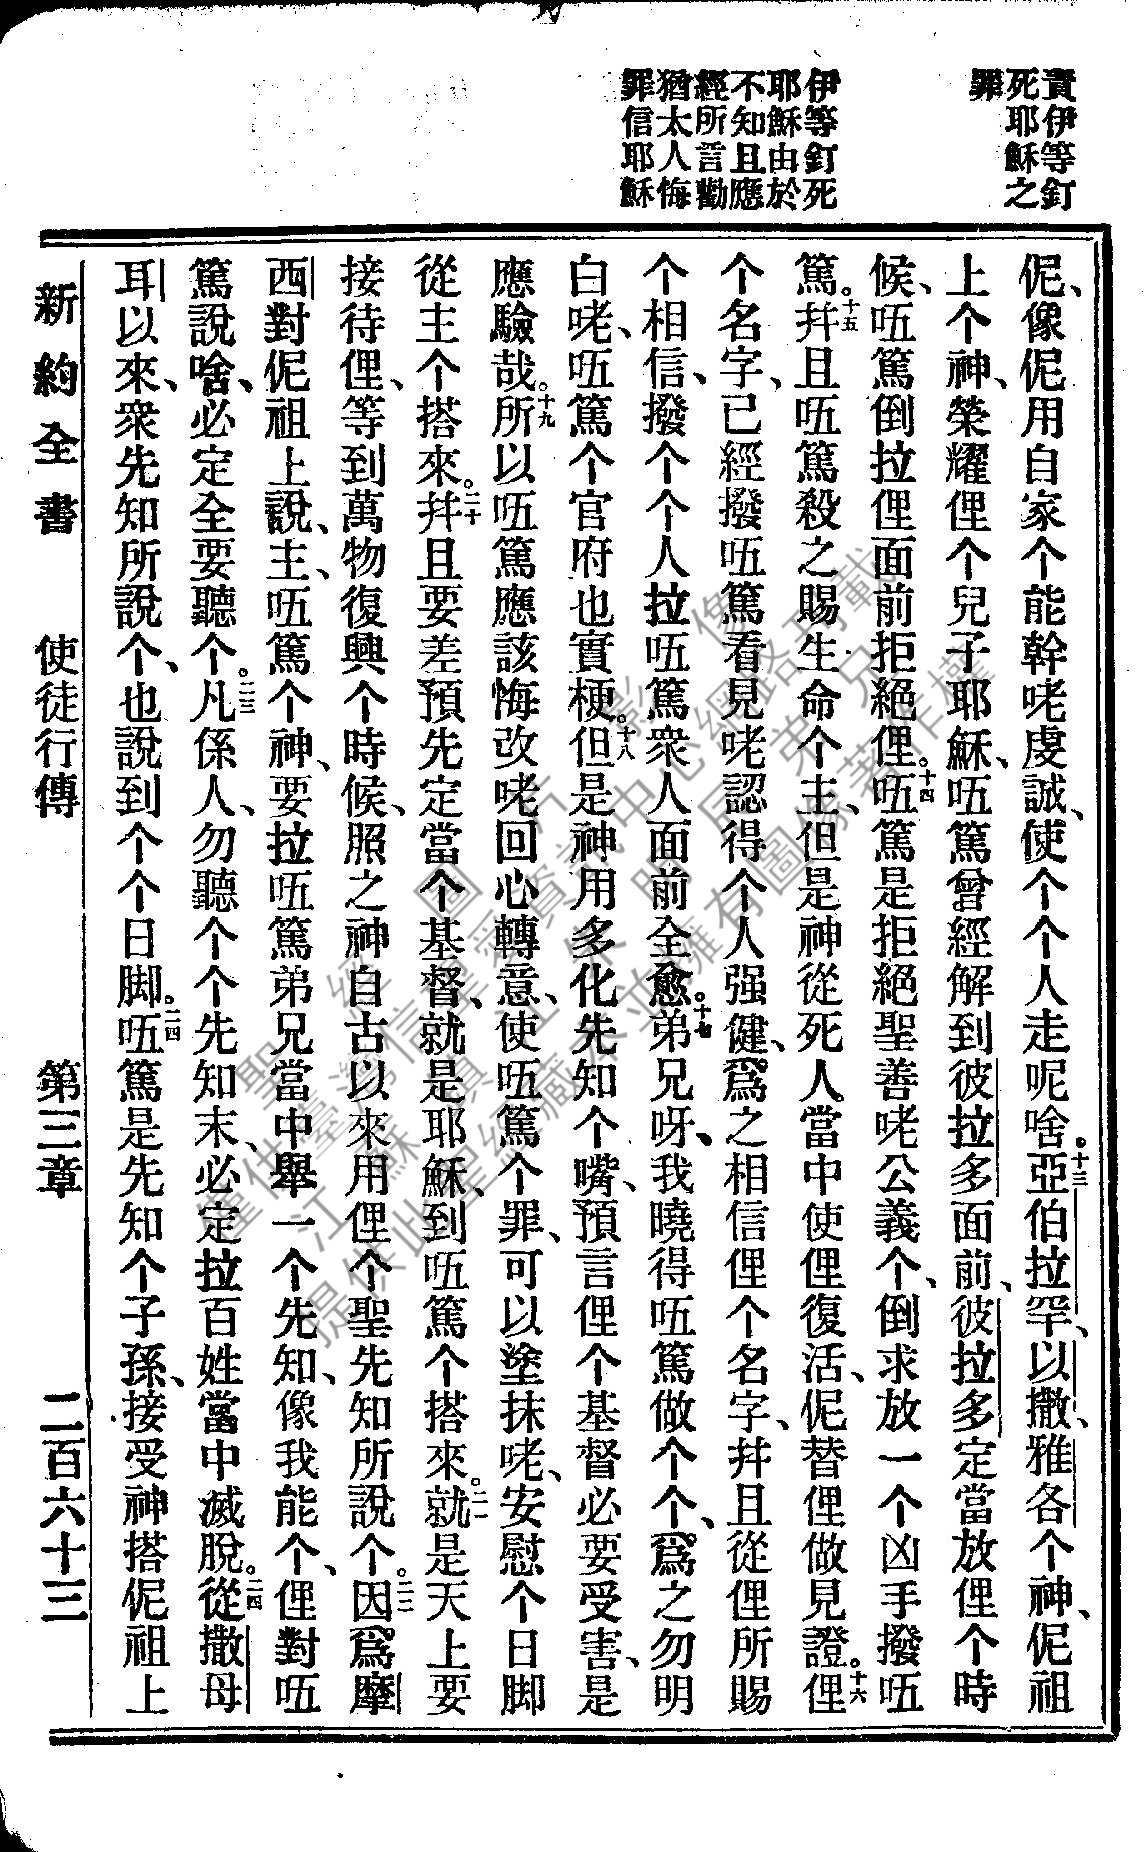 責伊等釘
死耶穌之
罪
伊等釘死
耶穌由於
不知且應
經所言勸
猶太人悔
罪信耶穌
伲、像伲用自家个能幹咾虔誠、使个个人走呢啥。十三亞伯拉罕、以撒、雅各个神、伲祖
上个神、榮耀俚个兒子耶穌、㕶篤曾經解到彼拉多面前、彼拉多定當放俚个時
候、㕶篤倒拉俚面前拒絕俚。十四㕶篤是拒絕聖善咾公義个、倒求放一个凶手撥㕶
篤。十五幷且㕶篤殺之賜生命个主、但是神從死人當中使俚復活、伲替俚做見證。十六俚
个名字、已經撥㕶篤看見咾認得个人强健、爲之相信俚个名字、幷且從俚所賜
个相信、撥个个人拉㕶篤衆人面前全愈。十七弟兄呀、我曉得㕶篤做个个、爲之勿明
白咾、㕶篤个官府也實梗。十八但是神用多化先知个嘴、預言俚个基督必要受害、是
應驗哉。十九所以㕶篤應該悔改咾回心轉意、使㕶篤个罪、可以塗抹咾、安慰个日脚
從主个搭來。二十幷且要差預先定當个基督、就是耶穌、到㕶篤个搭來。二一就是天上要
接待俚、等到萬物復興个時候、照之神自古以來用俚个聖先知所說个。二二因爲摩
西對伲祖上說、主、㕶篤个神、要拉㕶篤弟兄當中舉一个先知、像我能个、俚對㕶
篤說啥、必定全要聽个。二三凡係人、勿聽个个先知末、必定拉百姓當中滅脫。二四從撒母
耳以來、衆先知所說个、也說到个个日脚。二四㕶篤是先知个子孫、接受神搭伲祖上
新約全書　使徒行傳　第三章　二百六十三
聖經圖片影像
僅供臺灣信望愛資訊中心網路刊載